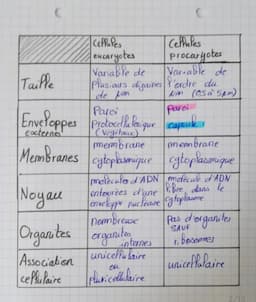 Cellules eucaryotes
Cellules procaryotes
Taille
Variable de
plusieurs dizaines
de µm
Variable de
l'ordre du
µm (0,5 à 5µm)
Enveloppes
externes
Paroi
(végétaux)
Paroi
capsule
Membranes
membrane
cytoplasmique
membrane
cytoplasmique
Noyau
molécules d'ADN
entourées d'une
enveloppe nucléaire
molécule d'ADN
libre dans le
cytoplasme
Organites
nombreux
organites
internes
Pas d'organites
SAUF
ribosomes
Association
cellulaire
unicellulaire
ou
pluricellulaire
unicellulaire